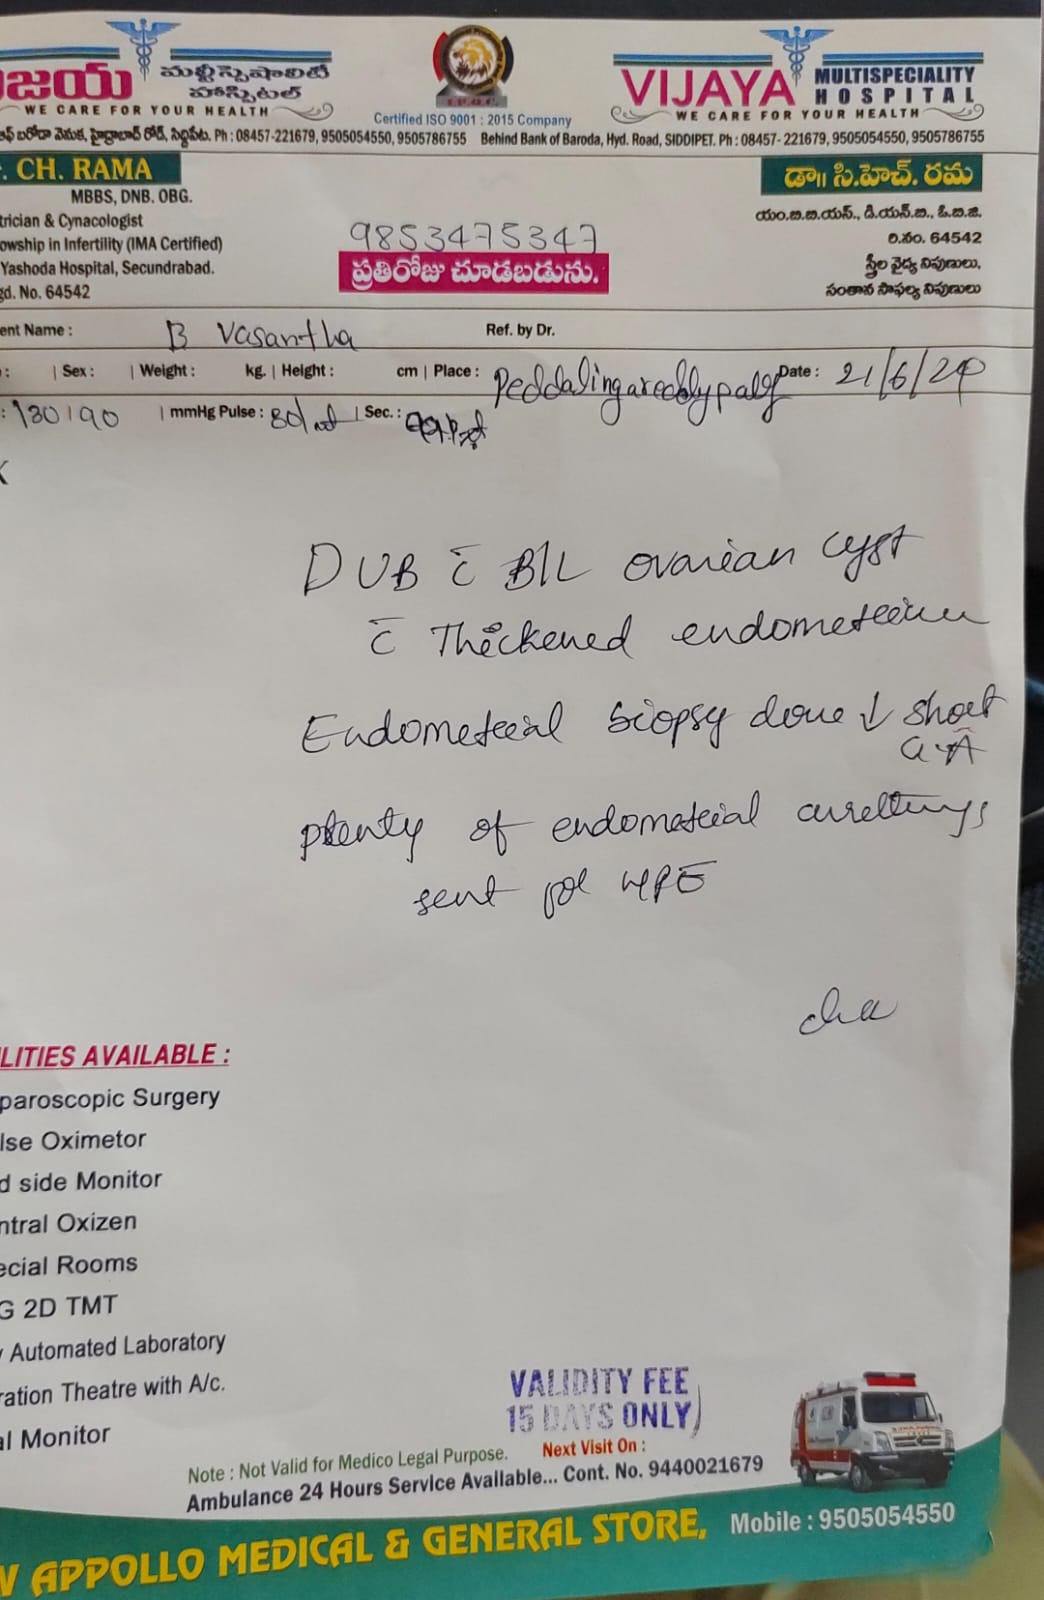 విజయ మల్టీస్పెషాలిటీ హాస్పిటల్
WE CARE FOR YOUR HEALTH
I.P.Q.C.
Certified ISO 9001 : 2015 Company
VIJAYA MULTISPECIALITY HOSPITAL
WE CARE FOR YOUR HEALTH
ఆఫ్ బరోడా వెనుక, హైద్రాబాద్ రోడ్, సిద్దిపేట. Ph : 08457-221679, 9505054550, 9505786755
Behind Bank of Baroda, Hyd. Road, SIDDIPET. Ph : 08457- 221679, 9505054550, 9505786755
. CH. RAMA
MBBS, DNB. OBG.
trician & Cynacologist
owship in Infertility (IMA Certified)
Yashoda Hospital, Secundrabad.
gd. No. 64542
9853475347
ప్రతిరోజు చూడబడును.
డా|| సి.హెచ్. రమ
యం.బి.బి.యస్., డి.యన్.బి., ఓ.బి.జి.
రి.నం. 64542
స్త్రీల వైద్య నిపుణులు,
సంతాన సాఫల్య నిపుణులు
ent Name : B Vasantha Ref. by Dr.
: | Sex : | Weight : kg. | Height : cm | Place : Peddalingareddypally Date : 21/6/24
: 130/90 | mmHg Pulse : 80/ | Sec. :
DUB c̄ B/L ovarian cyst
c̄ Thickened endometrium
Endometrial biopsy done ↓ short
GA
plenty of endometrial curettings
sent for HPE
LITIES AVAILABLE :
paroscopic Surgery
lse Oximetor
d side Monitor
ntral Oxizen
ecial Rooms
G 2D TMT
y Automated Laboratory
ration Theatre with A/c.
al Monitor
VALIDITY FEE
15 DAYS ONLY
Note : Not Valid for Medico Legal Purpose. Next Visit On :
Ambulance 24 Hours Service Available... Cont. No. 9440021679
W APPOLLO MEDICAL & GENERAL STORE, Mobile : 9505054550